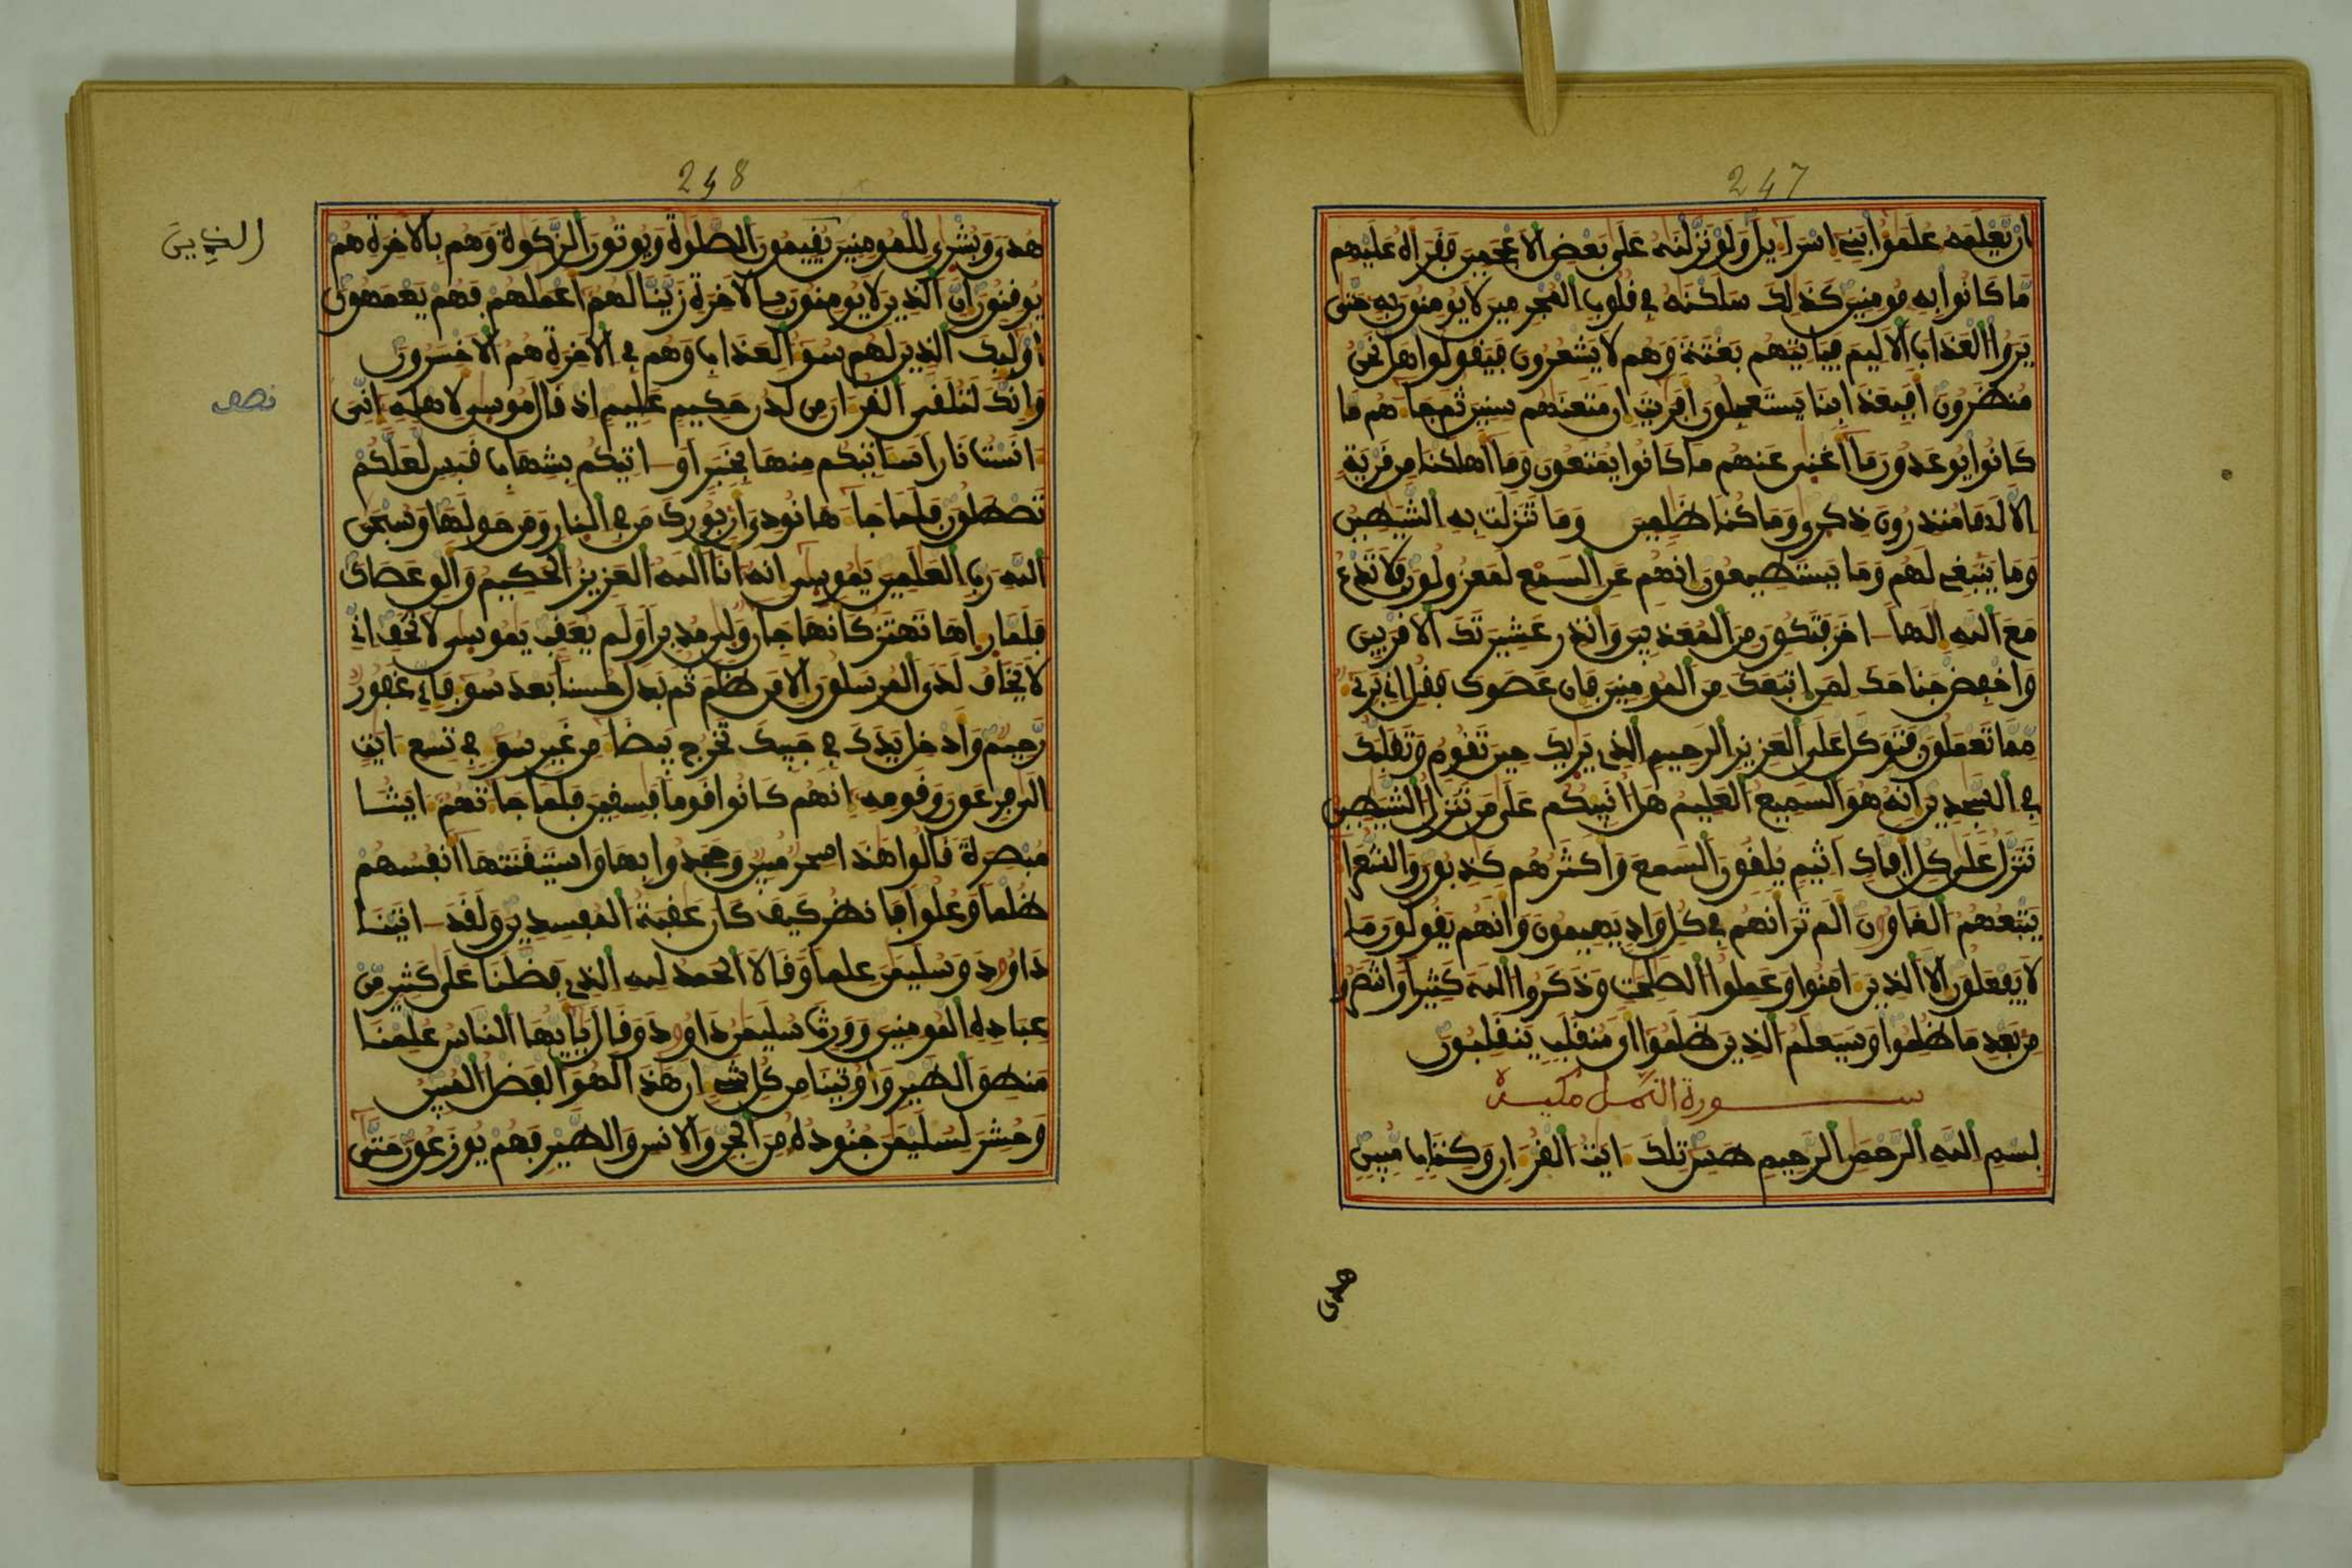 247
ان يعلمه علموا بنے اسراءيل ولو نزلنه على بعض الاعجمين فقراه عليهم
ما كانوا به مومنين كذلك سلكنه في قلوب المجرمين لا يومنون به حتى
يروا العذاب الاليم فياتيهم بغتة وهم لا يشعرون فيقولوا هل نحن
منظرون افبعذابنا يستعجلون افريت ان متعنهم سنين ثم جاءهم ما
كانوا يوعدون ما اغنى عنهم ما كانوا يمتعون وما اهلكنا من قرية
الا لها منذرون ذكرى وما كنا ظلمين وما تنزلت به الشيطين
وما ينبغے لهم وما يستطيعون انهم عن السمع لمعزولون فلا تدع
مع الله الها اخر فتكون من المعذبين وانذر عشيرتك الاقربين
واخفض جناحك لمن اتبعك من المومنين فان عصوك فقل انے برےء
مما تعملون فتوكل على العزيز الرحيم الذے يريك حين تقوم وتقلبك
في السجدين انه هو السميع العليم هل انبيكم على من تنزل الشيطين
تنزل على كل افاك اثيم يلقون السمع واكثرهم كذبون والشعرا
يتبعهم الغاون الم تر انهم في كل واد يهيمون وانهم يقولون ما
لا يفعلون الا الذين امنوا وعملوا الصلحت وذكروا الله كثيرا وانتصروا
من بعد ما ظلموا وسيعلم الذين ظلموا اي منقلب ينقلبون
سورة النمل مكية
بسم الله الرحمن الرحيم طس تلك ايت القران وكتاب مبين
هدى
248
هدى وبشرى للمومنين يقيمون الصلوة ويوتون الزكوة وهم بالاخرة هم
يوقنون ان الذين لا يومنون بالاخرة زينا لهم اعملهم فهم يعمهون
اوليك الذين لهم سوء العذاب وهم في الاخرة هم الاخسرون
وانك لتلقى القران من لدن حكيم عليم اذ قال موسى لاهله انے
انست نارا ساتيكم منها بخبر او اتيكم بشهاب قبس لعلكم
تصطلون فلما جاءها نودى ان بورك من في النار ومن حولها وسبحن
الله رب العلمين يموسى انه انا الله العزيز الحكيم والق عصاك
فلما راها تهتز كانها جان ولى مدبرا ولم يعقب يموسى لا تخف انے
لا يخاف لدي المرسلون الا من ظلم ثم بدل حسنا بعد سوء فانے غفور
رحيم وادخل يدك في جيبك تخرج بيضا من غير سوء في تسع ايت
الى فرعون وقومه انهم كانوا قوما فسقين فلما جاتهم ايتنا
مبصرة قالوا هذا سحر مبين وجحدوا بها واستيقنتها انفسهم
ظلما وعلوا فانظر كيف كان عقبة المفسدين ولقد اتينا
داود وسليمن علما وقالا الحمد لله الذے فضلنا على كثير من
عباده المومنين وورث سليمن داود وقال يايها الناس علمنا
منطق الطير واوتينا من كل شےء ان هذا لهو الفضل المبين
وحشر لسليمن جنوده من الجن والانس والطير فهم يوزعون حتى
نصف